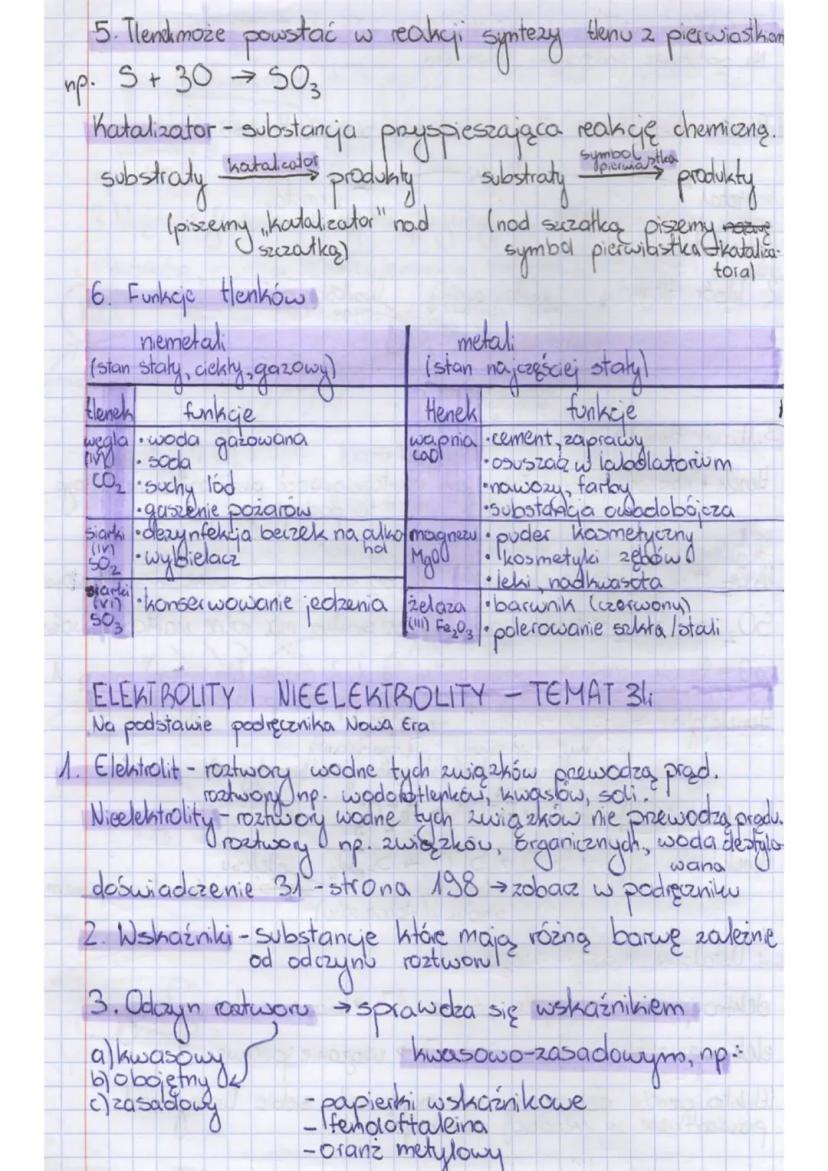 5. Tlenek może powstać w reakcji syntezy tlenu z pierwiastkiem
np. S + 3O → SO₃
Katalizator - substancja przyspieszająca reakcję chemiczną.
substraty katalizator → produkty
(piszemy „katalizator" nad
szczałką)
substraty symbol pierwiastka → produkty
(nad szczałką piszemy nazwę
symbol pierwiastka - kataliza-
tora)
6. Funkcje tlenków
niemetali
(stan stały, ciekły, gazowy)
metali
(stan najczęściej stały)
tlenek funkcje
tlenek funkcje
węgla (IV) CO₂
• woda gazowana
• soda
• suchy lód
• gaszenie pożarów
wapnia CaO
• cement, zaprawy
• osuszacz w labolatorium
• nawozy, farby
• substancja owadobójcza
siarki (IV) SO₂
• dezynfekcja beczek na alko
hol
• wybielacz
magnezu MgO
• puder kosmetyczny
• kosmetyki zębów
• leki, nadkwasota
siarki (VI) SO₃
• konserwowanie jedzenia
żelaza (III) Fe₂O₃
• barwnik (czerwony)
• polerowanie szkła/stali
ELEKTROLITY I NIEELEKTROLITY - TEMAT 34
Na podstawie podręcznika Nowa Era
1. Elektrolit - roztwory wodne tych związków przewodzą prąd.
roztwory np. wodorotlenków, kwasów, soli.
Nieelektrolity - roztwory wodne tych związków nie przewodzą prądu.
roztwory np. związków, organicznych, woda destylo-
wana
doświadczenie 31 - strona 198 → zobacz w podręczniku
2. Wskaźniki - substancje które mają różną barwę zależnie
od odczynu roztworu
3. Odczyn roztworu → sprawdza się wskaźnikiem
kwasowo-zasadowym, np:
a) kwasowy
b) obojętny
c) zasadowy
- papierki wskaźnikowe
- fenoloftaleina
- oranż metylowy